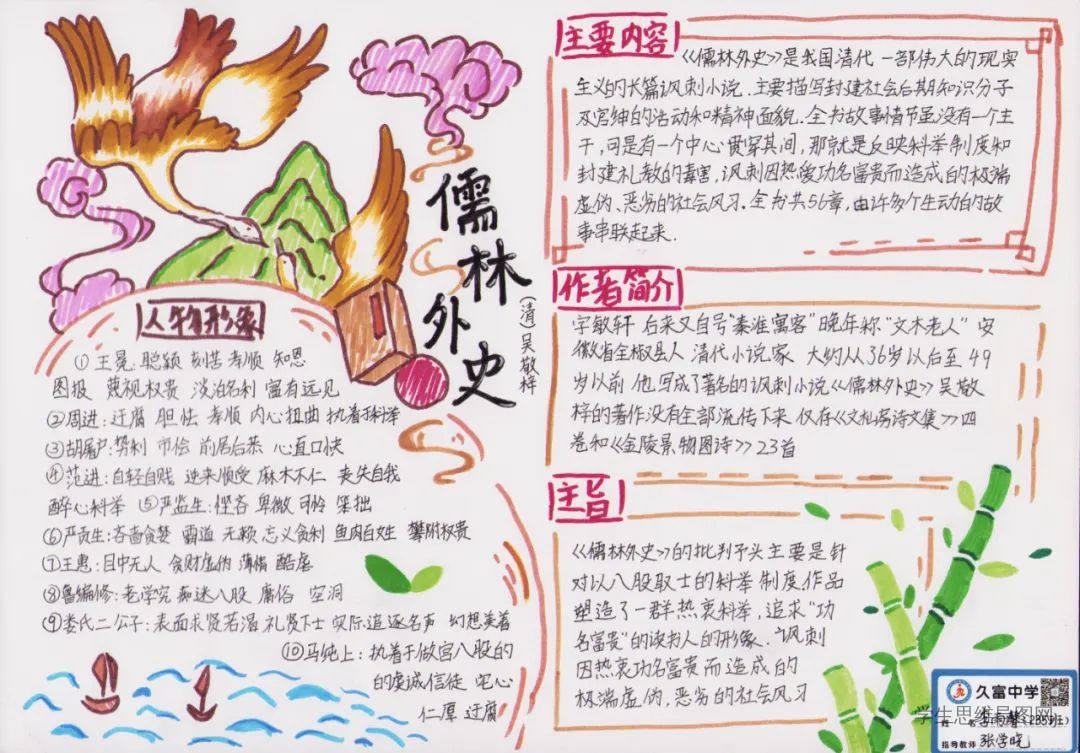 儒林外史
(清)吴敬梓
人物形象
①王冕:聪颖 刻苦 孝顺 知恩
图报 蔑视权贵 淡泊名利 富有远见
②周进:迂腐 胆怯 孝顺 内心扭曲 执着于科举
③胡屠户:势利 市侩 前居后恭 心直口快
④范进:自轻自贱 逆来顺受 麻木不仁 丧失自我
醉心科举 ⑤严监生:悭吝 卑微 可怜 笨拙
⑥严贡生:吝啬贪婪 霸道 无赖 忘义贪利 鱼肉百姓 攀附权贵
⑦王惠:目中无人 贪财虚伪 薄情 酷虐
⑧鲁编修:老学究 痴迷八股 庸俗 空洞
⑨娄氏二公子:表面求贤若渴 礼贤下士 实际追逐名声 幻想美着
⑩马纯上:执着于做宫八股的
的虔诚信徒 宅心
仁厚 迂腐
主要内容
《儒林外史》是我国清代一部伟大的现实
主义的长篇讽刺小说.主要描写封建社会后期知识分子
及官绅的活动和精神面貌.全书故事情节虽没有一个主
干,可是有一个中心贯穿其间,那就是反映科举制度和
封建礼教的毒害,讽刺因热爱功名富贵而造成的极端
虚伪、恶劣的社会风习.全书共56章,由许多个生动的故
事串联起来.
作者简介
字敏轩 后来又自号"秦淮寓客"晚年称"文木老人" 安
徽省全椒县人 清代小说家 大约从36岁以后至49
岁以前 他写成了著名的讽刺小说《儒林外史》吴敬
梓的著作没有全部流传下来 仅存《文木房诗文集》四
卷和《金陵景物图诗》23首
主旨
《儒林外史》的批判矛头主要是针
对以八股取士的科举制度.作品
塑造了一群热衷科举,追求"功
名富贵"的读书人的形象.讽刺
因热衷功名富贵而造成的
极端虚伪,恶劣的社会风习
久富中学
学生思维导图网
(235班)
指导教师 张学晓